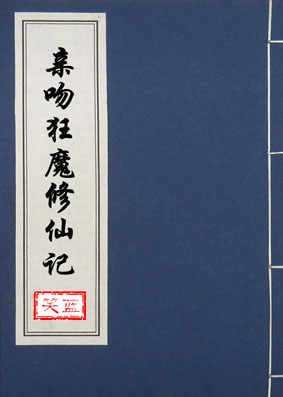 亲吻狂魔修仙记
笑蓝